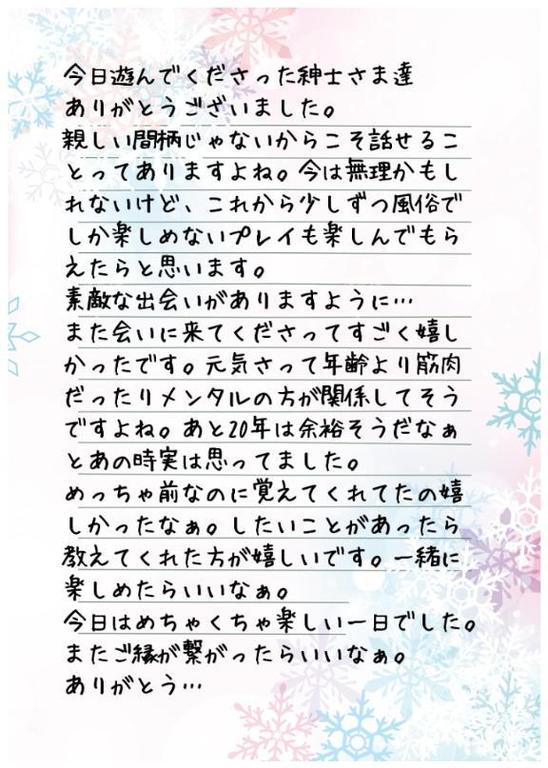 今日遊んでくださった紳士さま達
ありがとうございました。
親しい間柄じゃないからこそ話せるこ
とってありますよね。今は無理かもし
れないけど、これから少しずつ風俗で
しか楽しめないプレイも楽しんでもら
えたらと思います。
素敵な出会いがありますように…
また会いに来てくださってすごく嬉し
かったです。元気さって年齢より筋肉
だったりメンタルの方が関係してそう
ですよね。あと20年は余裕そうだなぁ
とあの時実は思ってました。
めっちゃ前なのに覚えてくれてたの嬉
しかったなぁ。したいことがあったら
教えてくれた方が嬉しいです。一緒に
楽しめたらいいなぁ。
今日はめちゃくちゃ楽しい一日でした。
またご縁が繋がったらいいなぁ。
ありがとう…